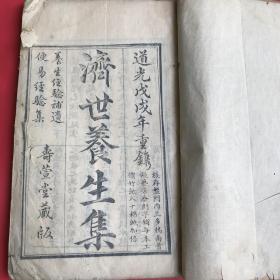 道光戊戌年重鐫
濟世養生集
養生經驗補遺
便易經驗集
壽萱堂藏版